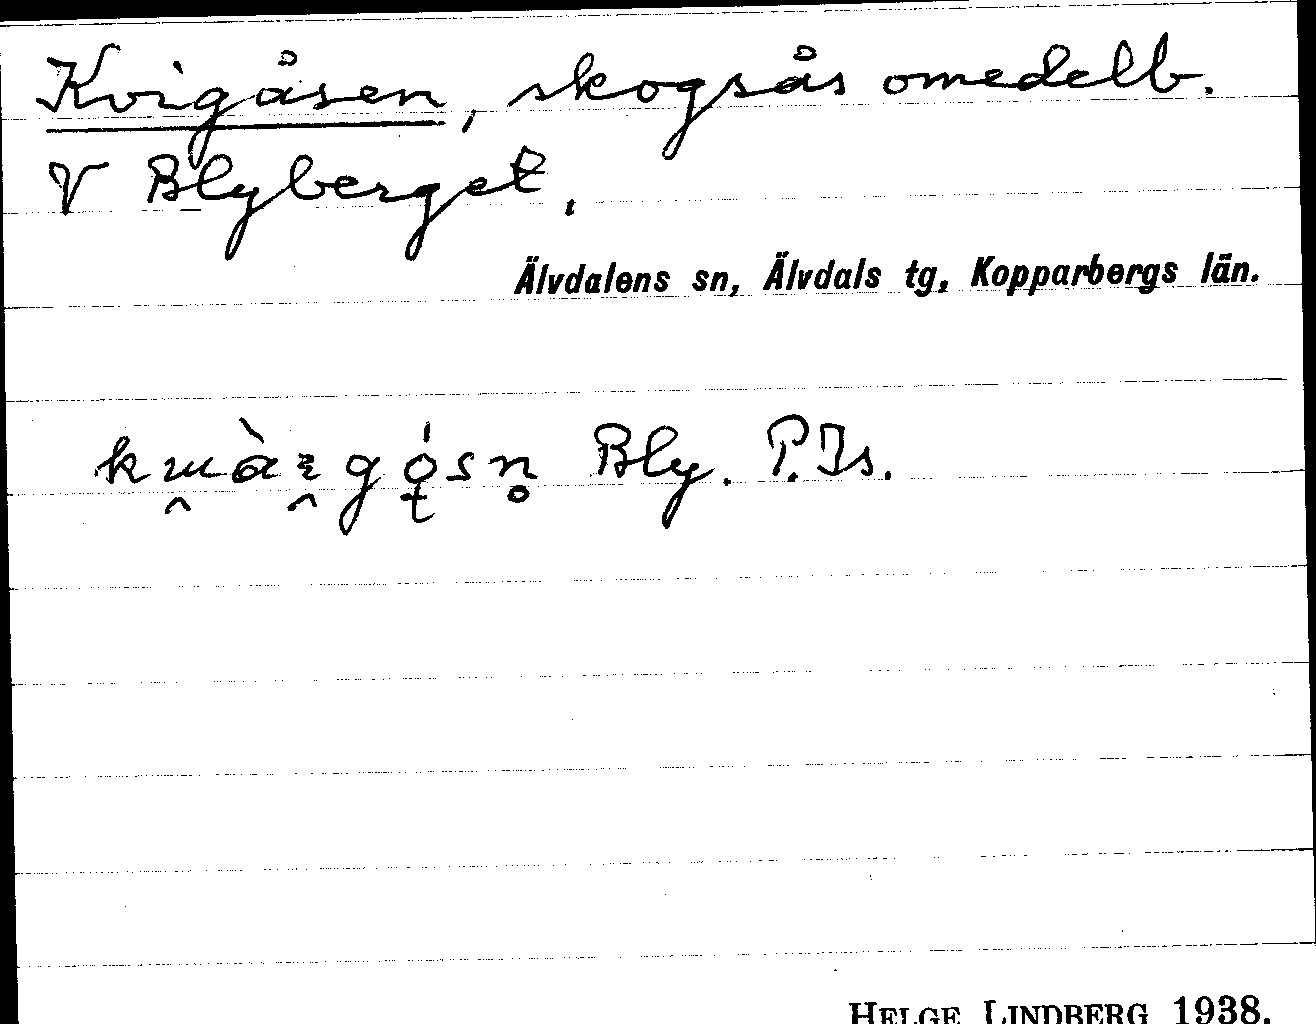 Kvigåsen, skogsås omedelb.
V Blyberget.
Älvdalens sn, Älvdals tg, Kopparbergs län.
Bly. P. Is.
HELGE LINDBERG 1938.